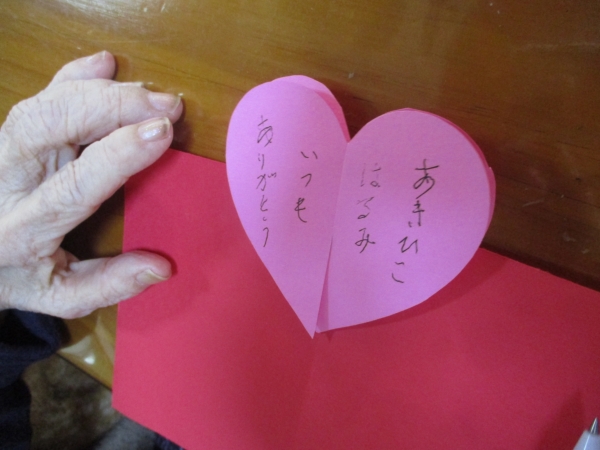 あきひこ
はるみ
いつも
ありがとう